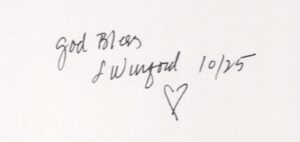 God Bless
J Winford 10/25